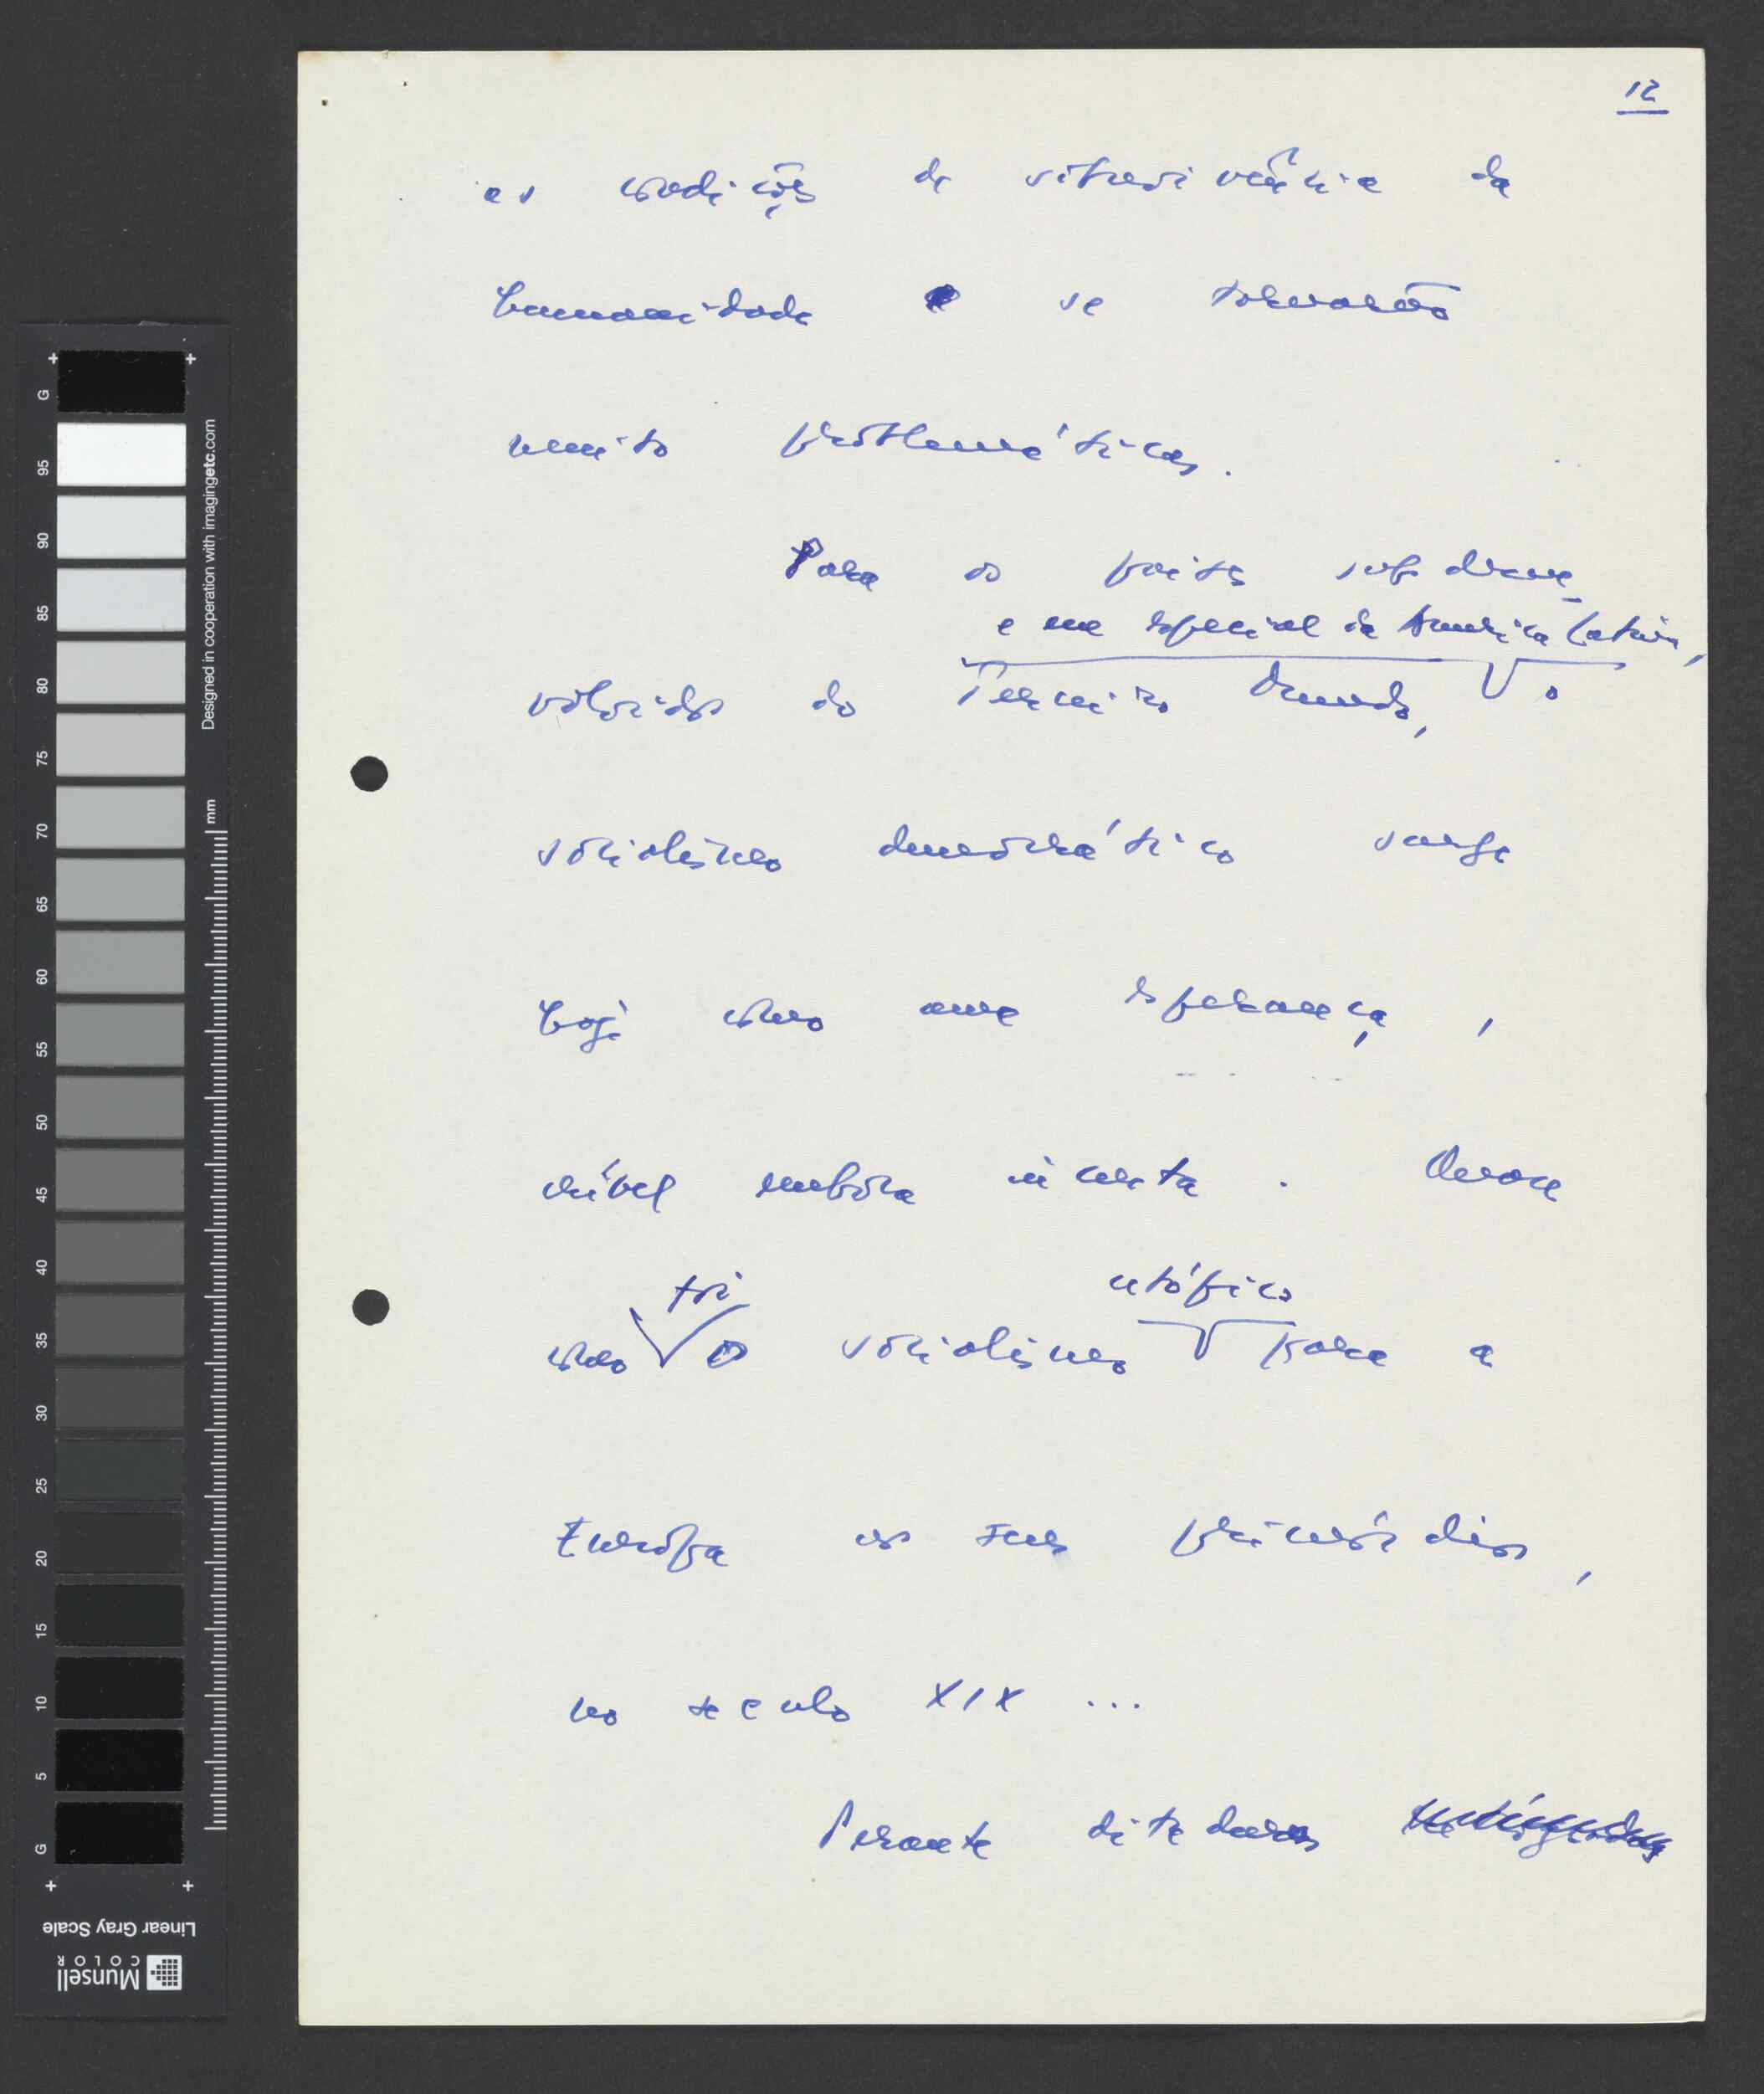 12
as condições de sobrevivência da
humanidade se tornarão
muito problemáticas.
Para os países subdesen-
e em especial da America Latina,
volvidos do Terceiro Mundo, o
socialismo democrático surge
hoje como uma esperança,
embora incerta.
foi utópico
como o socialismo para a
Europa nos seus primórdios,
no seculo XIX ...
Perante ditaduras
G
95
90
85
80
75
70
65
60
55
50
45
40
35
30
25
20
15
10
5
G
mm
Designed in cooperation with imagingetc.com
Linear Gray Scale
Munsell
COLOR